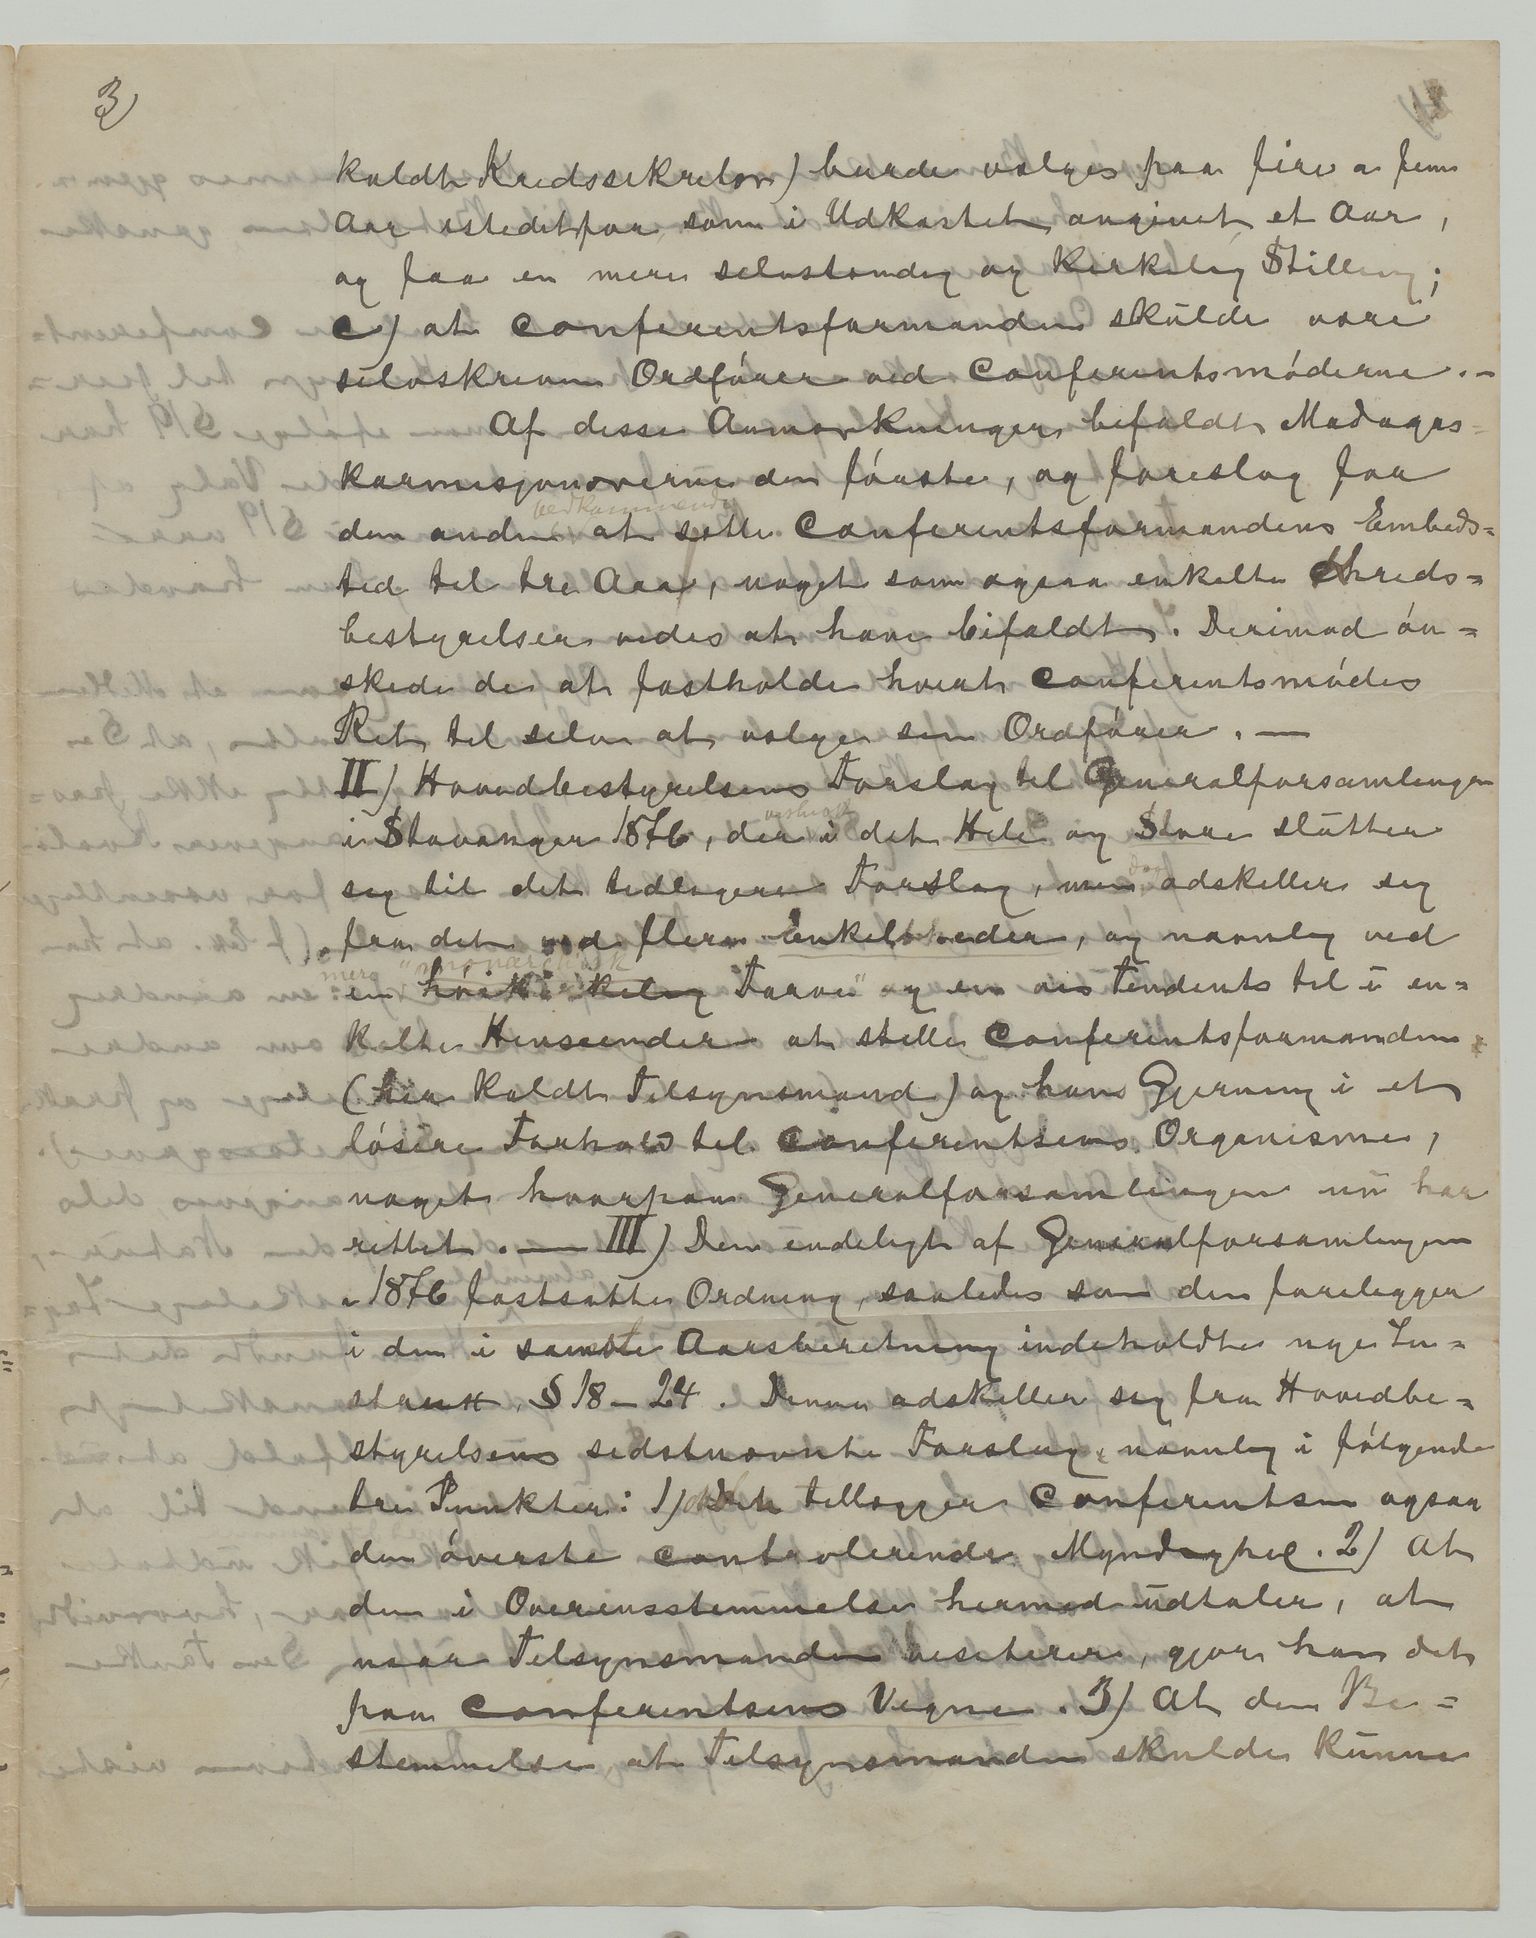 3)
kaldt Kredssekretær) burde vælges paa fire a fem
Aar istedetfor, som i Udkastet angivet et Aar,
og faa en mere selvstændig og kirkelig Stilling;
c) at Conferentsformanden skulde være
selvskreven Ordfører ved Conferentsmøderne. —
Af disse Anmærkninger bifaldt Madagas-
karmisjonærerne den første, og foreslog for
vedkommende
den anden at sætte Conferentsformandens Embeds-
tid til tre Aar, noget som ogsaa enkelte Kreds-
bestyrelser vides at have bifaldt. Derimod øn-
skede de at fastholde hvert Conferentsmødes
Ret til selv at vælge sin Ordfører. —
II) Hovedbestyrelsens Forslag til Generalforsamlingen
i Stavanger 1876, der i det Hele og Store slutter
sig til det tidligere Forslag, men dog adskiller sig
fra det ved flere Enkeltheder, og navnlig ved
mere "monarchisk
en kirkelig Farve" og en vis Tendents til i en-
kelte Henseender at stille Conferentsformanden
(her kaldt Tilsynsmand) og hans Gjerning i et
løsere Forhold til Conferentsens Organisme,
noget hvorpaa Generalforsamlingen nu har
rettet. — III) Den endeligt af Generalforsamlingen
i 1876 fastsatte Ordning, saaledes som den foreligger
i den i samme Aarsberetning indeholdte nye In-
strux § 18 – 24. Denne adskiller sig fra Hovedbe-
styrelsens sidstnævnte Forslag, navnlig i følgende
tre Punkter: 1) at den tillægger Conferentsen ogsaa
den øverste controlerende Myndighed. 2) At
den i Overensstemmelse hermed udtaler, at
naar Tilsynsmanden visiterer, gjør han det
paa Conferentsens Vegne. 3) At den Be-
stemmelse, at Tilsynsmanden skulde kunne